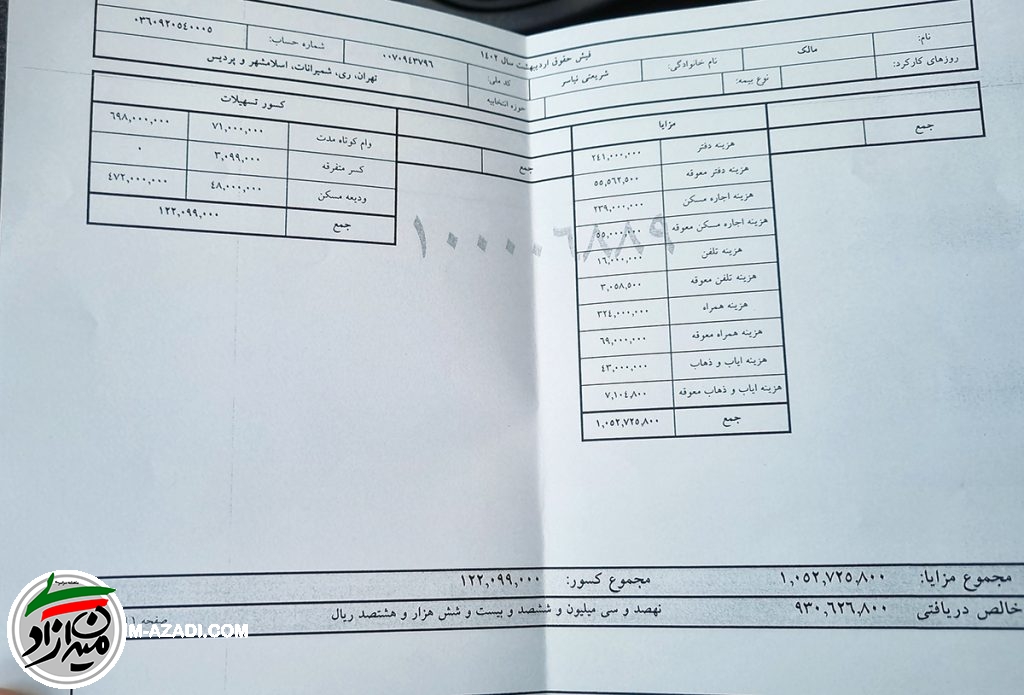 فیش حقوق اردیبهشت سال ۱۴۰۲
نام: مالک نام خانوادگی: شریعتی نیاسر کد ملی: ۰۰۷۰۹۴۳۷۹۶ شماره حساب: ۰۳۶۰۹۲۰۵۴۰۰۰۵
روزهای کارکرد: نوع بیمه: حوزه انتخابیه تهران، ری، شمیرانات، اسلامشهر و پردیس
جمع
مزایا
هزینه دفتر ۲۴۱,۰۰۰,۰۰۰
هزینه دفتر معوقه ۵۵,۵۶۲,۵۰۰
هزینه اجاره مسکن ۲۳۹,۰۰۰,۰۰۰
هزینه اجاره مسکن معوقه ۵۵,۰۰۰,۰۰۰
هزینه تلفن ۱۶,۰۰۰,۰۰۰
هزینه تلفن معوقه ۳,۰۵۸,۵۰۰
هزینه همراه ۳۲۴,۰۰۰,۰۰۰
هزینه همراه معوقه ۶۹,۰۰۰,۰۰۰
هزینه ایاب و ذهاب ۴۳,۰۰۰,۰۰۰
هزینه ایاب و ذهاب معوقه ۷,۱۰۴,۸۰۰
جمع ۱,۰۵۲,۷۲۵,۸۰۰
جمع
کسور تسهیلات
وام کوتاه مدت ۷۱,۰۰۰,۰۰۰ ۶۹۸,۰۰۰,۰۰۰
کسر متفرقه ۳,۰۹۹,۰۰۰ ۰
ودیعه مسکن ۴۸,۰۰۰,۰۰۰ ۴۷۲,۰۰۰,۰۰۰
جمع ۱۲۲,۰۹۹,۰۰۰
۱۰۰۰۰۰۶۸۸۹
مجموع مزایا: ۱,۰۵۲,۷۲۵,۸۰۰ مجموع کسور: ۱۲۲,۰۹۹,۰۰۰
خالص دریافتی ۹۳۰,۶۲۶,۸۰۰ نهصد و سی میلیون و ششصد و بیست و شش هزار و هشتصد ریال صفحه ۱
میهن آزاد
M-AZADI.COM